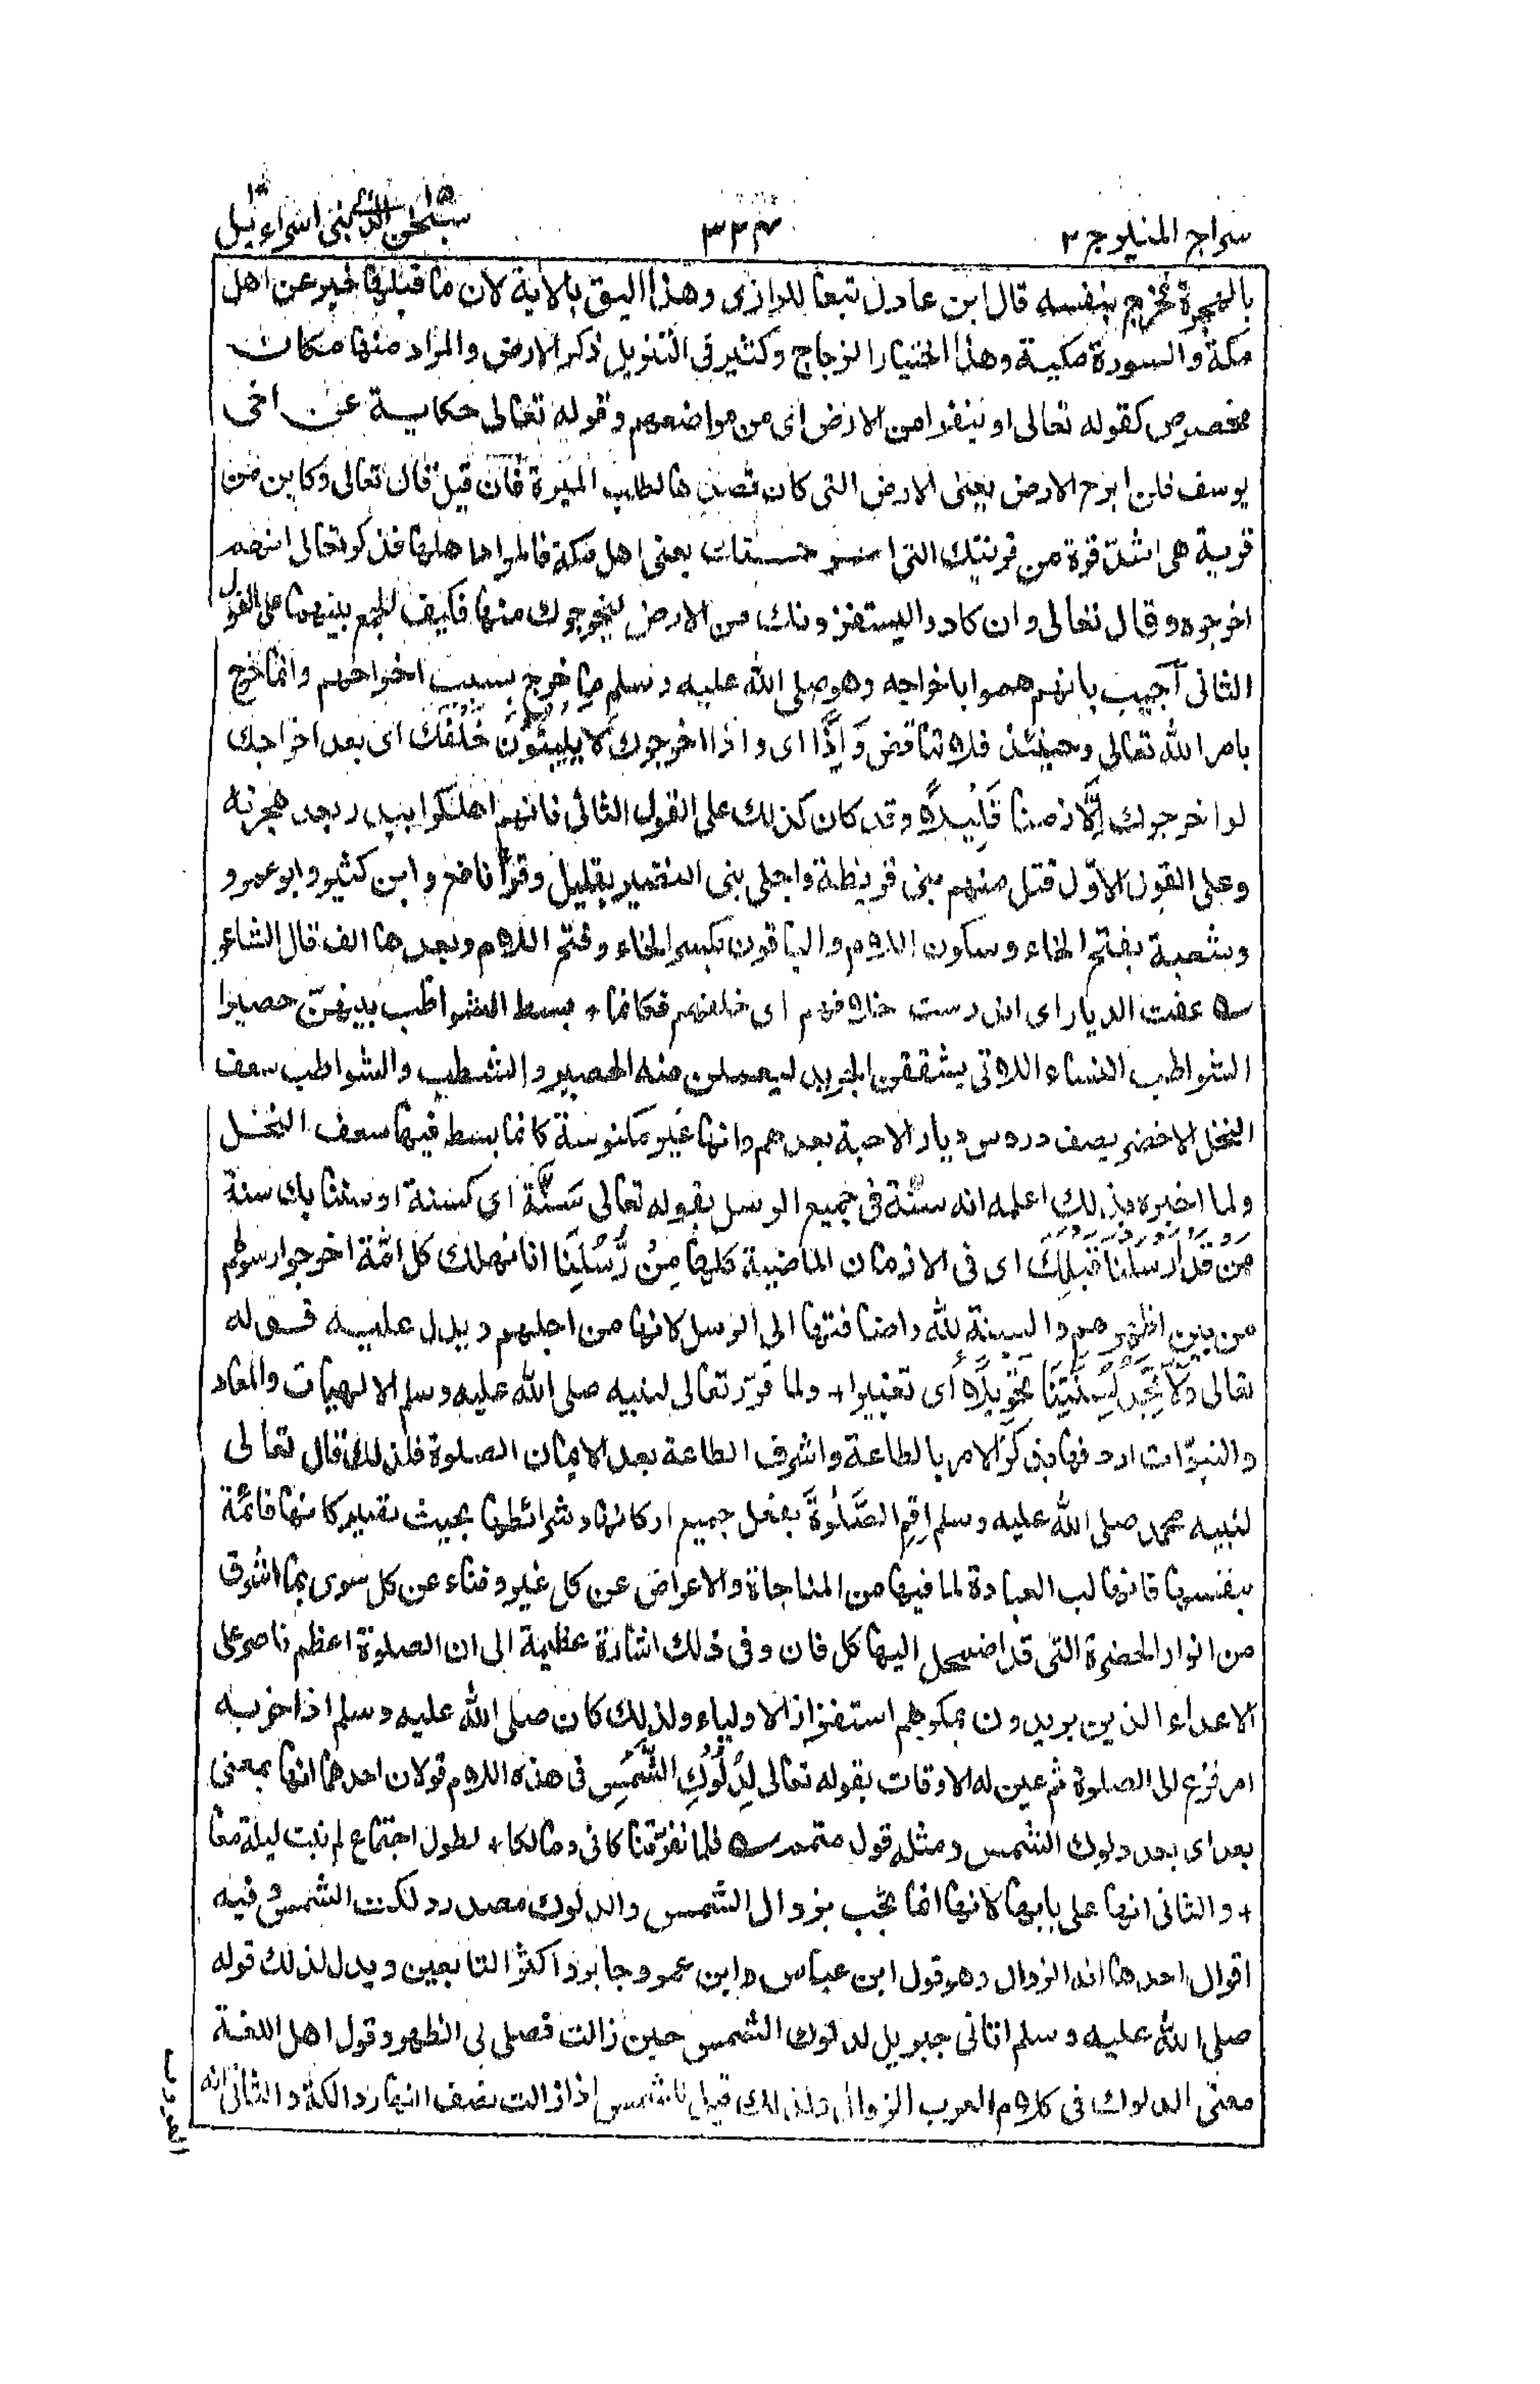 سراج المنير ج ٢
٣٣٤
سبحٰن الذى ١٥ بنى اسراءيل ١٧
بالهجرة فخرج بنفسه قال ابن عادل تبعا للرازى وهذا اليق بالاية لان ما قبلها خبر عن اهل
مكة والسورة مكية وهذا اختيار الزجاج وكثير فى التنزيل ذكر الارض والمراد منها مكان
مخصوص كقوله تعالى او ينفوا من الارض اى من مواضعهم وقوله تعالى حكاية عن اخى
يوسف فلن ابرح الارض يعنى الارض التى كان قصدها لطلب الميرة فان قيل قال تعالى وكاين من
قرية هى اشدّ قوة من قريتك التى اخرجتك يعنى اهل مكة فالمراد اهلها فذكر تعالى انهم
اخرجوه وقال تعالى وان كادوا ليستفزونك من الارض ليخرجوك منها فكيف الجمع بينهما على القول
الثانى أجيب بانهم هموا باخراجه وهو صلى الله عليه وسلم ما خرج بسبب اخراجهم وانما خرج
بامر الله تعالى وحينئذ فلا تناقض وَاِذًا اى واذا اخرجوك لَّا يَلْبَثُوْنَ خَلْفَكَ اى بعد اخراجك
لو اخرجوك اِلَّا زمنا قَلِيْلًا وقد كان كذلك على القول الثانى فانهم اهلكوا ببدر بعد هجرته
وعلى القول الاوّل قتل منهم بنى قريظة واجلى بنى النضير بقليل وقرأ نافع وابن كثير وابو عمرو
وشعبة بفتح الخاء وسكون اللام والباقون بكسر الخاء وفتح اللام وبعدها الف قال الشاعر
؎ عفت الديار اى اندرست خلافهم اى خلفهم فكانما + بسط الشواطب بينهنّ حصيرا
الشواطب النساء اللاتى يشققن الجريد ليعملن منه الحصير والشطب والشواطب سعف
النخل الاخضر يصف دروس ديار الاحبة بعدهم وانها غير مكنوسة كانما بسط فيها سعف النخل
ولما اخبره بذلك اعلمه انه سنّة فى جميع الرسل بقوله تعالى سُنَّةَ اى كسنة او سننا بك سنة
مَنْ قَدْ اَرْسَلْنَا قَبْلَكَ اى فى الازمان الماضية كلها مِنْ رُّسُلِنَا انا نهلك كل امّة اخرجوا رسولهم
من بين اظهرهم والسنة لله واضافتها الى الرسل لانها من اجلهم ويدل عليه قوله
تعالى وَلَا تَجِدُ لِسُنَّتِنَا تَحْوِيْلًا اى تغييرا + ولما قرّر تعالى لنبيه صلى الله عليه وسلم الالهيات والمعاد
والنبوّات اردفها بذكر الامر بالطاعة واشرف الطاعة بعد الايمان الصلوة فلذلك قال تعالى
لنبيه محمد صلى الله عليه وسلم اَقِمِ الصَّلٰوةَ بفعل جميع اركانها وشرائطها بحيث تصير كانها قائمة
بنفسها فانها لب العبادة لما فيها من المناجاة والاعراض عن كل غير وفناء عن كل سوى بما اشرق
من انوار الحضرة التى قد اضمحل اليها كل فان وفى ذلك اشارة عظيمة الى ان الصلوة اعظم ناصر على
الاعداء الذين يريدون بمكرهم استفزاز الاولياء ولذلك كان صلى الله عليه وسلم اذا حزبه
امر فزع الى الصلوة ثم عين له الاوقات بقوله تعالى لِدُلُوْكِ الشَّمْسِ فى هذه اللام قولان احدهما انها بمعنى
بعد اى بعد دلوك الشمس ومثله قول متمم ؎ فلما تفرّقنا كانى ومالكا + لطول اجتماع لم نبت ليلة معا
+ والثانى انها على بابها لانها انما تجب بزوال الشمس والدلوك مصدر دلكت الشمس وفيه
اقوال احدها انه الزوال وهو قول ابن عباس وابن عمر وجابر واكثر التابعين ويدل لذلك قوله
صلى الله عليه وسلم اتانى جبريل لدلوك الشمس حين زالت فصلى لى الظهر وقول اهل اللغة
معنى الدلوك فى كلام العرب الزوال ولذلك قيل للشمس اذا زالت نصف النهار دالكة والثانى انه